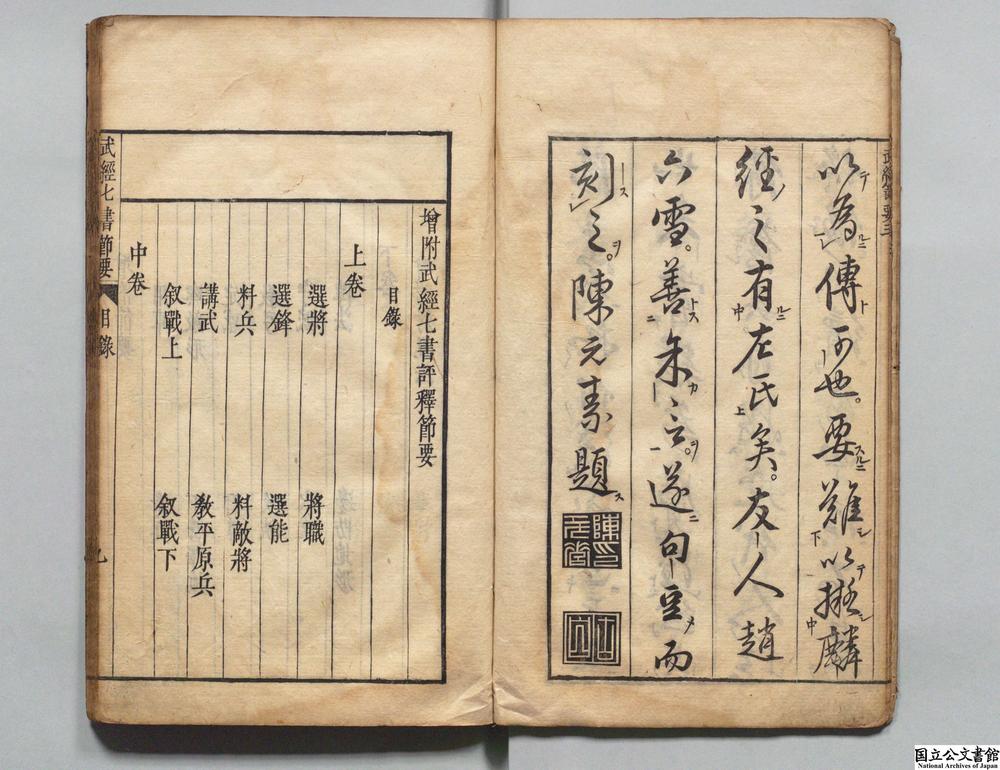 以為傳可也。要難以擬麟
經之有左氏矣。友人趙
六雪。善余言。遂句豆而
刻之。陳元素題
增附武經七書評釋節要
目錄
上卷
選將 將職
選鋒 選能
料兵 料敵將
講武 教平原兵
叙戰上 叙戰下
中卷
武經七書節要 目錄
国立公文書館
National Archives of Japan